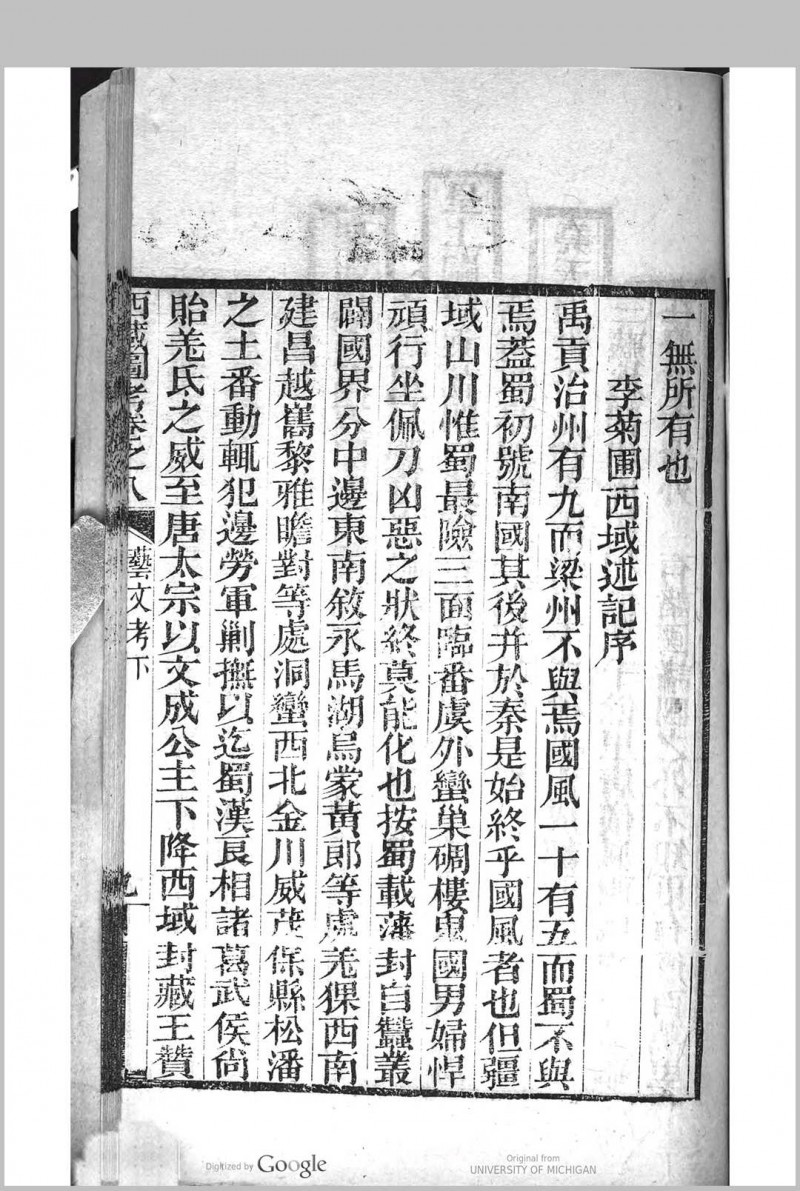 一無所有也
李菊圃西域述記序
禹貢治州有九而梁州不與焉國風一十有五而蜀不與
焉蓋蜀初號南國其後并於秦是始終乎國風者也但疆
域山川惟蜀最險三面臨番虞外蠻巢碉樓鬼國男婦悍
頑行坐佩刀凶惡之狀終莫能化也按蜀載藩封自蠶叢
闢國界分中邊東南敘永馬湖烏蒙黃郎等處羌猓西南
建昌越巂黎雅瞻對等處洞蠻西北金川威茂保縣松潘
之土番動輒犯邊勞軍剿撫以迄蜀漢良相諸葛武侯尙
貽羌氏之威至唐太宗以文成公主下降西域封藏王贊
西藏圖考卷之八 藝文考下 九
Digitized by Google
Original from
UNIVERSITY OF MICHIGAN